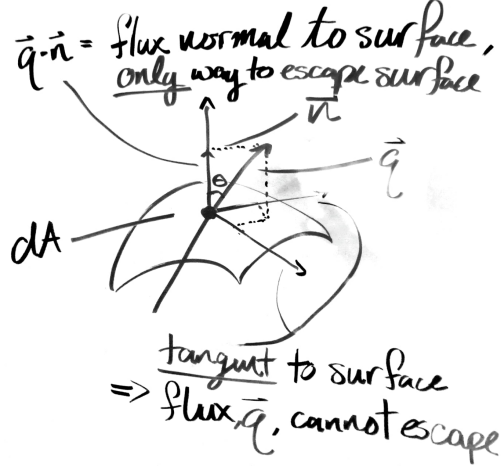 q⃗·n⃗ = flux normal to surface,
only way to escape surface
n̅
θ
q⃗
dA
tangent to surface
=> flux, q⃗, cannot escape